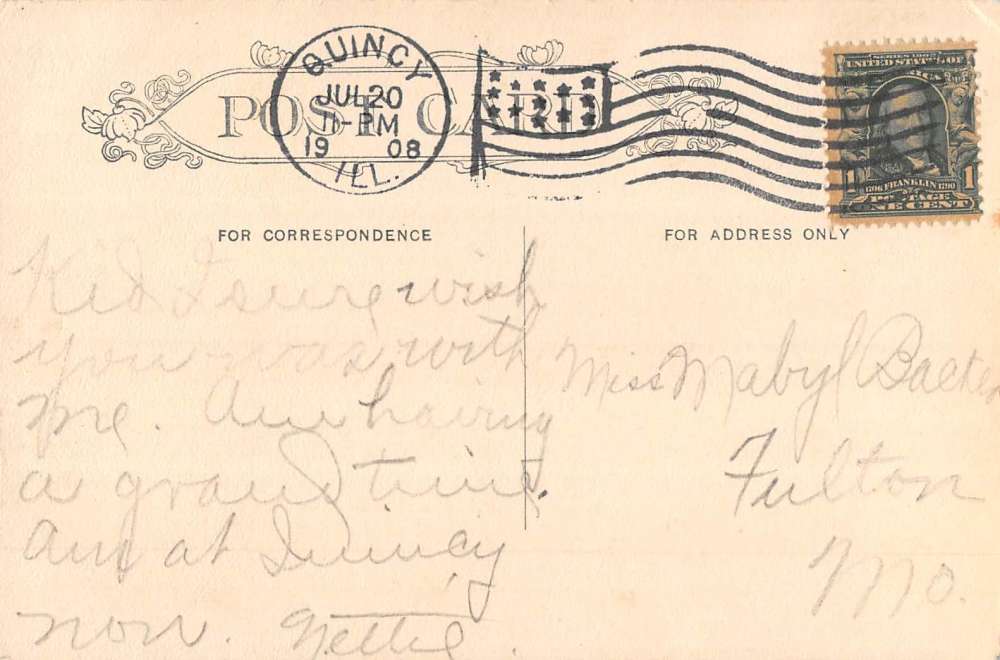 POST CARD
QUINCY
JUL 20
11-PM
1908
ILL.
SERIES 1902
UNITED STATES OF
1 1706 FRANKLIN 1790 1
POSTAGE
ONE CENT
FOR CORRESPONDENCE
FOR ADDRESS ONLY
Kid I sure wish
you was with
me. Am having
a grand time.
Am at Quincy
now. Nettie
Miss Mabyl
Fulton
Mo.